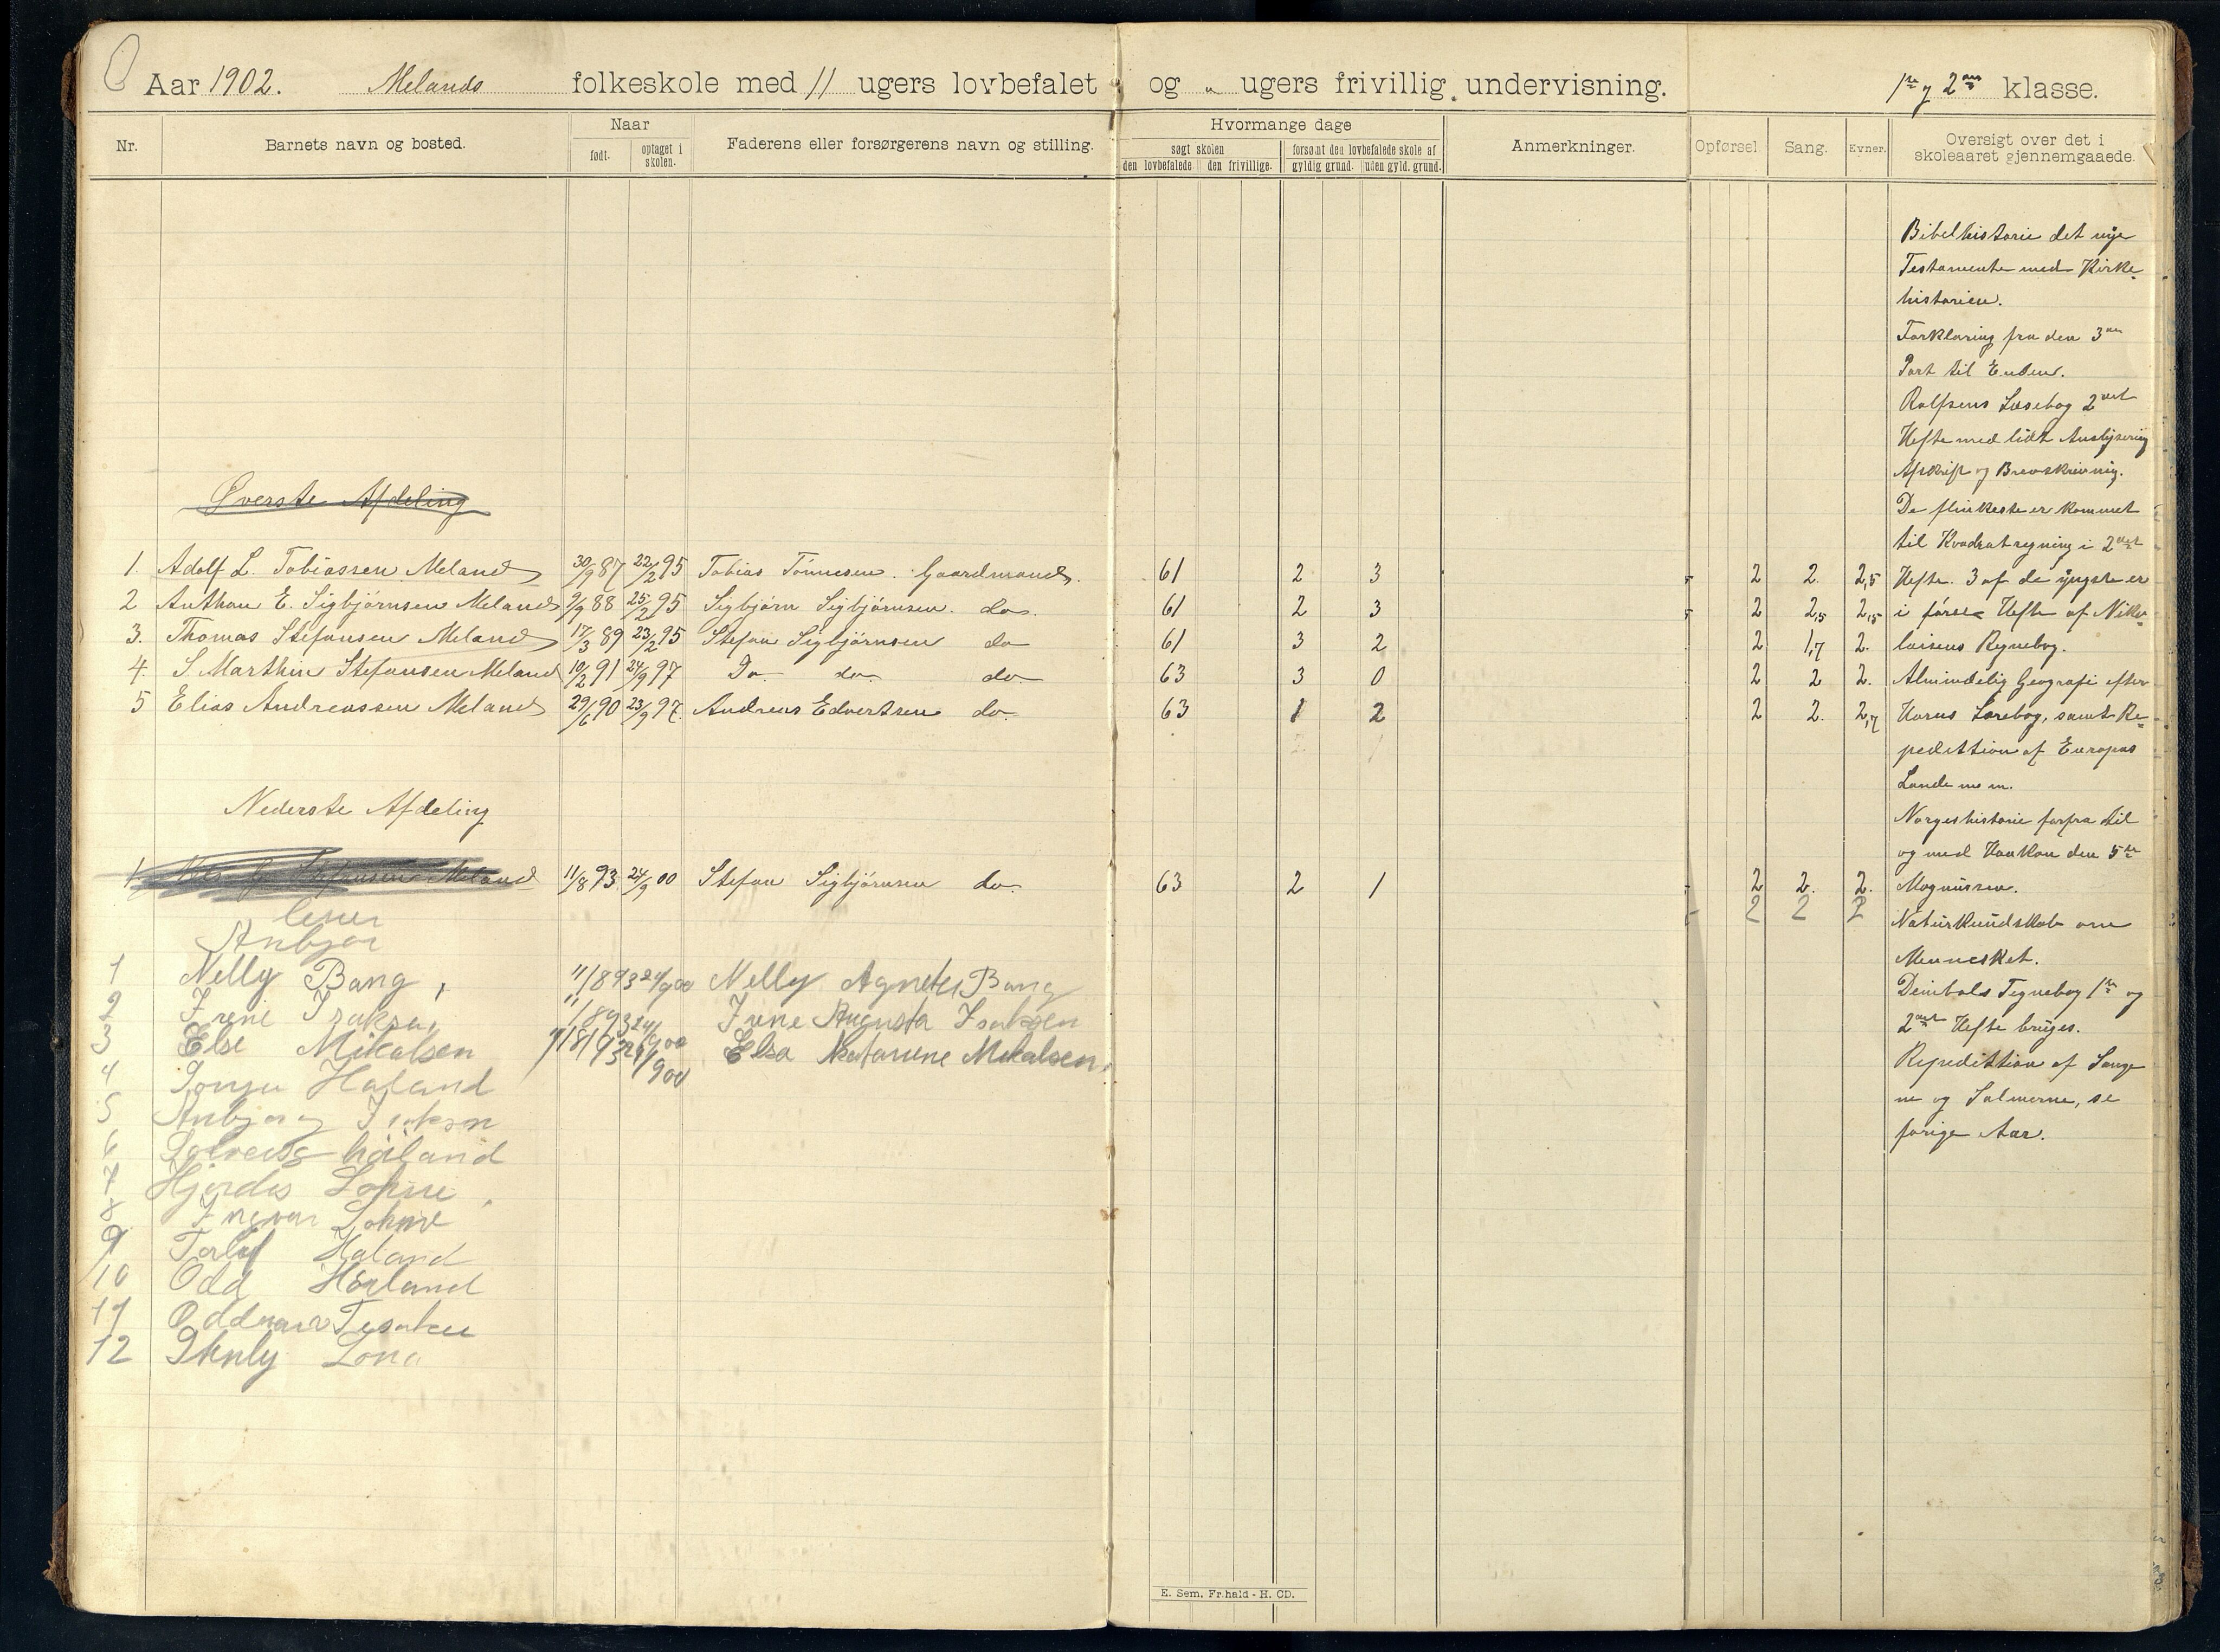 Aar 1902. Melands folkeskole med 11 ugers lovbefalet og „ ugers frivillig undervisning. 1ste og 2den klasse.
Nr. Barnets navn og bosted. Naar Faderens eller forsørgerens navn og stilling. Hvormange dage Anmerkninger. Opførsel Sang. Evner. Oversigt over det i skoleaaret gjennemgaaede.
født. optaget i skolen. søgt skolen forsømt den lovbefalede skole af
den lovbefalede den frivillige. gyldig grund. uden gyld. grund.
Øverste Afdeling
1. Adolf L. Tobiassen Meland 30/9 87 22/2 95 Tobias Tönnesen. Gaardmand. 61 2 3 2 2. 2,5
2 Anthon E. Sigbjörnsen Meland 9/9 88 25/2 95 Sigbjörn Sigbjörnsen. do. 61 2 3 2 2,5 2,5
3. Thomas Stefansen Meland 17/3 89 23/2 95 Stefan Sigbjörnsen do 61 3 2 2 1,7 2.
4. S Marthin Stefansen Meland 10/2 91 24/9 97 Do. do. do 63 3 0 2 2 2.
5 Elias Andreassen Meland 29/6 90 23/9 97. Andreas Edvertsen do. 63 1 2 2 2. 2,7
Nederste Afdeling
1 Stefansen Meland 11/8 93 24/9 00 Stefan Sigbjörnsen do. 63 2 1 2 2. 2.
2 2 2
Anbjor
1 Nelly Bang, 11/893 24/900 Nelly Agnetes Bang
2 Irene Isaksen 11/893 24/900 Irene Augusta Isaksen
3 Else Mikalsen 11/8193 24/900 Elsa Katarine Mikalsen.
4 Sonja Haland
5 Anbjorg Isaksen
6 Solveig håland
7 Hjørdis Lohne
8 Ingvar Lohne
9 Torlef Haland
10 Odd Hörland
11 Oddmar
12
Bibelhistorie det nye
Testamente med Kirke-
historien.
Forklaring fra den 3die
Part til Enden.
Rolfsens Læsebog 2det
Hefte med lidt Analysering
Afskrift og Brevskrivning.
De flinkeste er kommet
til Kvadratregning i 2det
Hefte. 3 af de yngste er
i første Hefte af Niko-
laisens Regnebog.
Almindelig Geografi efter
Horns Lærebog, samt Re-
pedittion af Europas
Lande m m.
Norgeshistorie forfra til
og med Haakon den 5te
Magnüssen.
Natürkündskab om
Mennesket.
Deinbols Tegnebog 1ste og
2det Hefte brüges.
Repedittion af Sange
ne og Salmerne, se
forige Aar.
E. Sem. Fr.hald - H. OD.